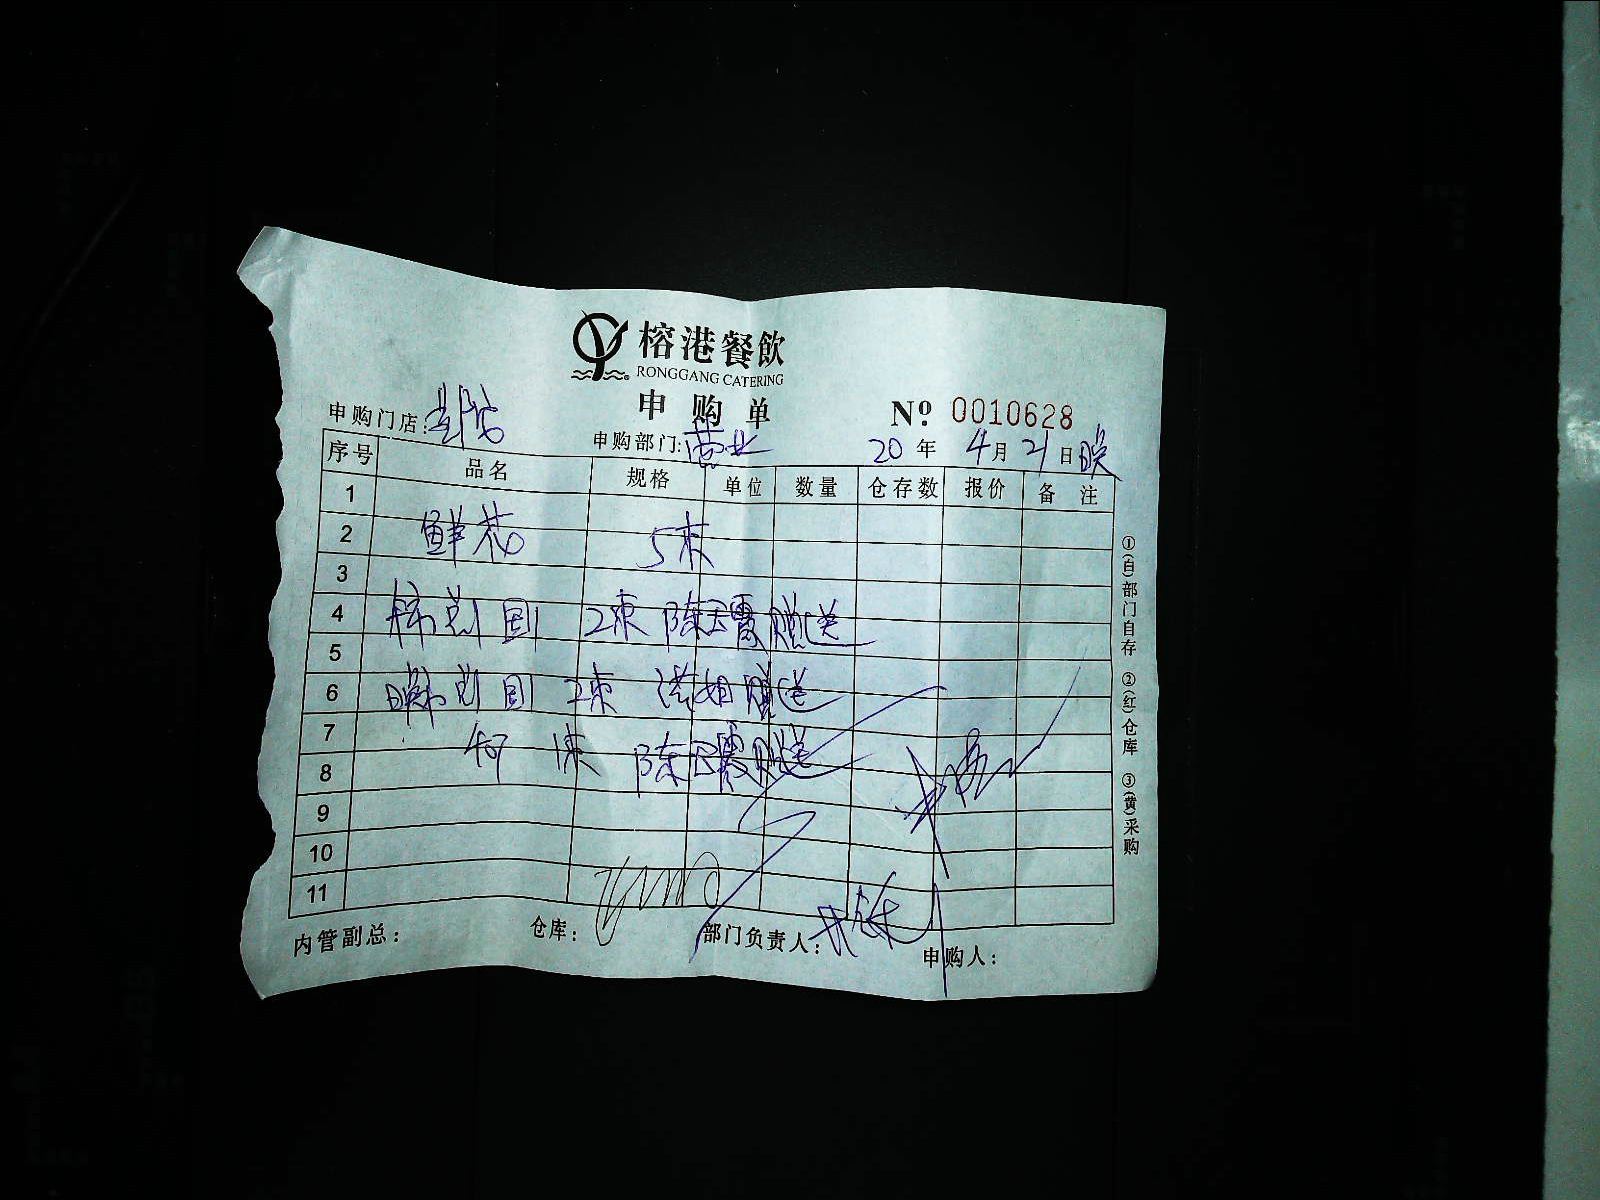 榕港餐飲
RONGGANG CATERING
申购单
№: 0010628
申购门店:
申购部门:营业
20年4月21日晚
序号 品名 规格 单位 数量 仓存数 报价 备注
1
2 鲜花 5束
3
4 国 2束 陈玉霞赠送
5
6 国 2束 洪姐赠送
7 何 1束 陈玉霞赠送
8
9
10
11
①(白)部门自存 ②(红)仓库 ③(黄)采购
内管副总: 仓库: 部门负责人: 申购人: